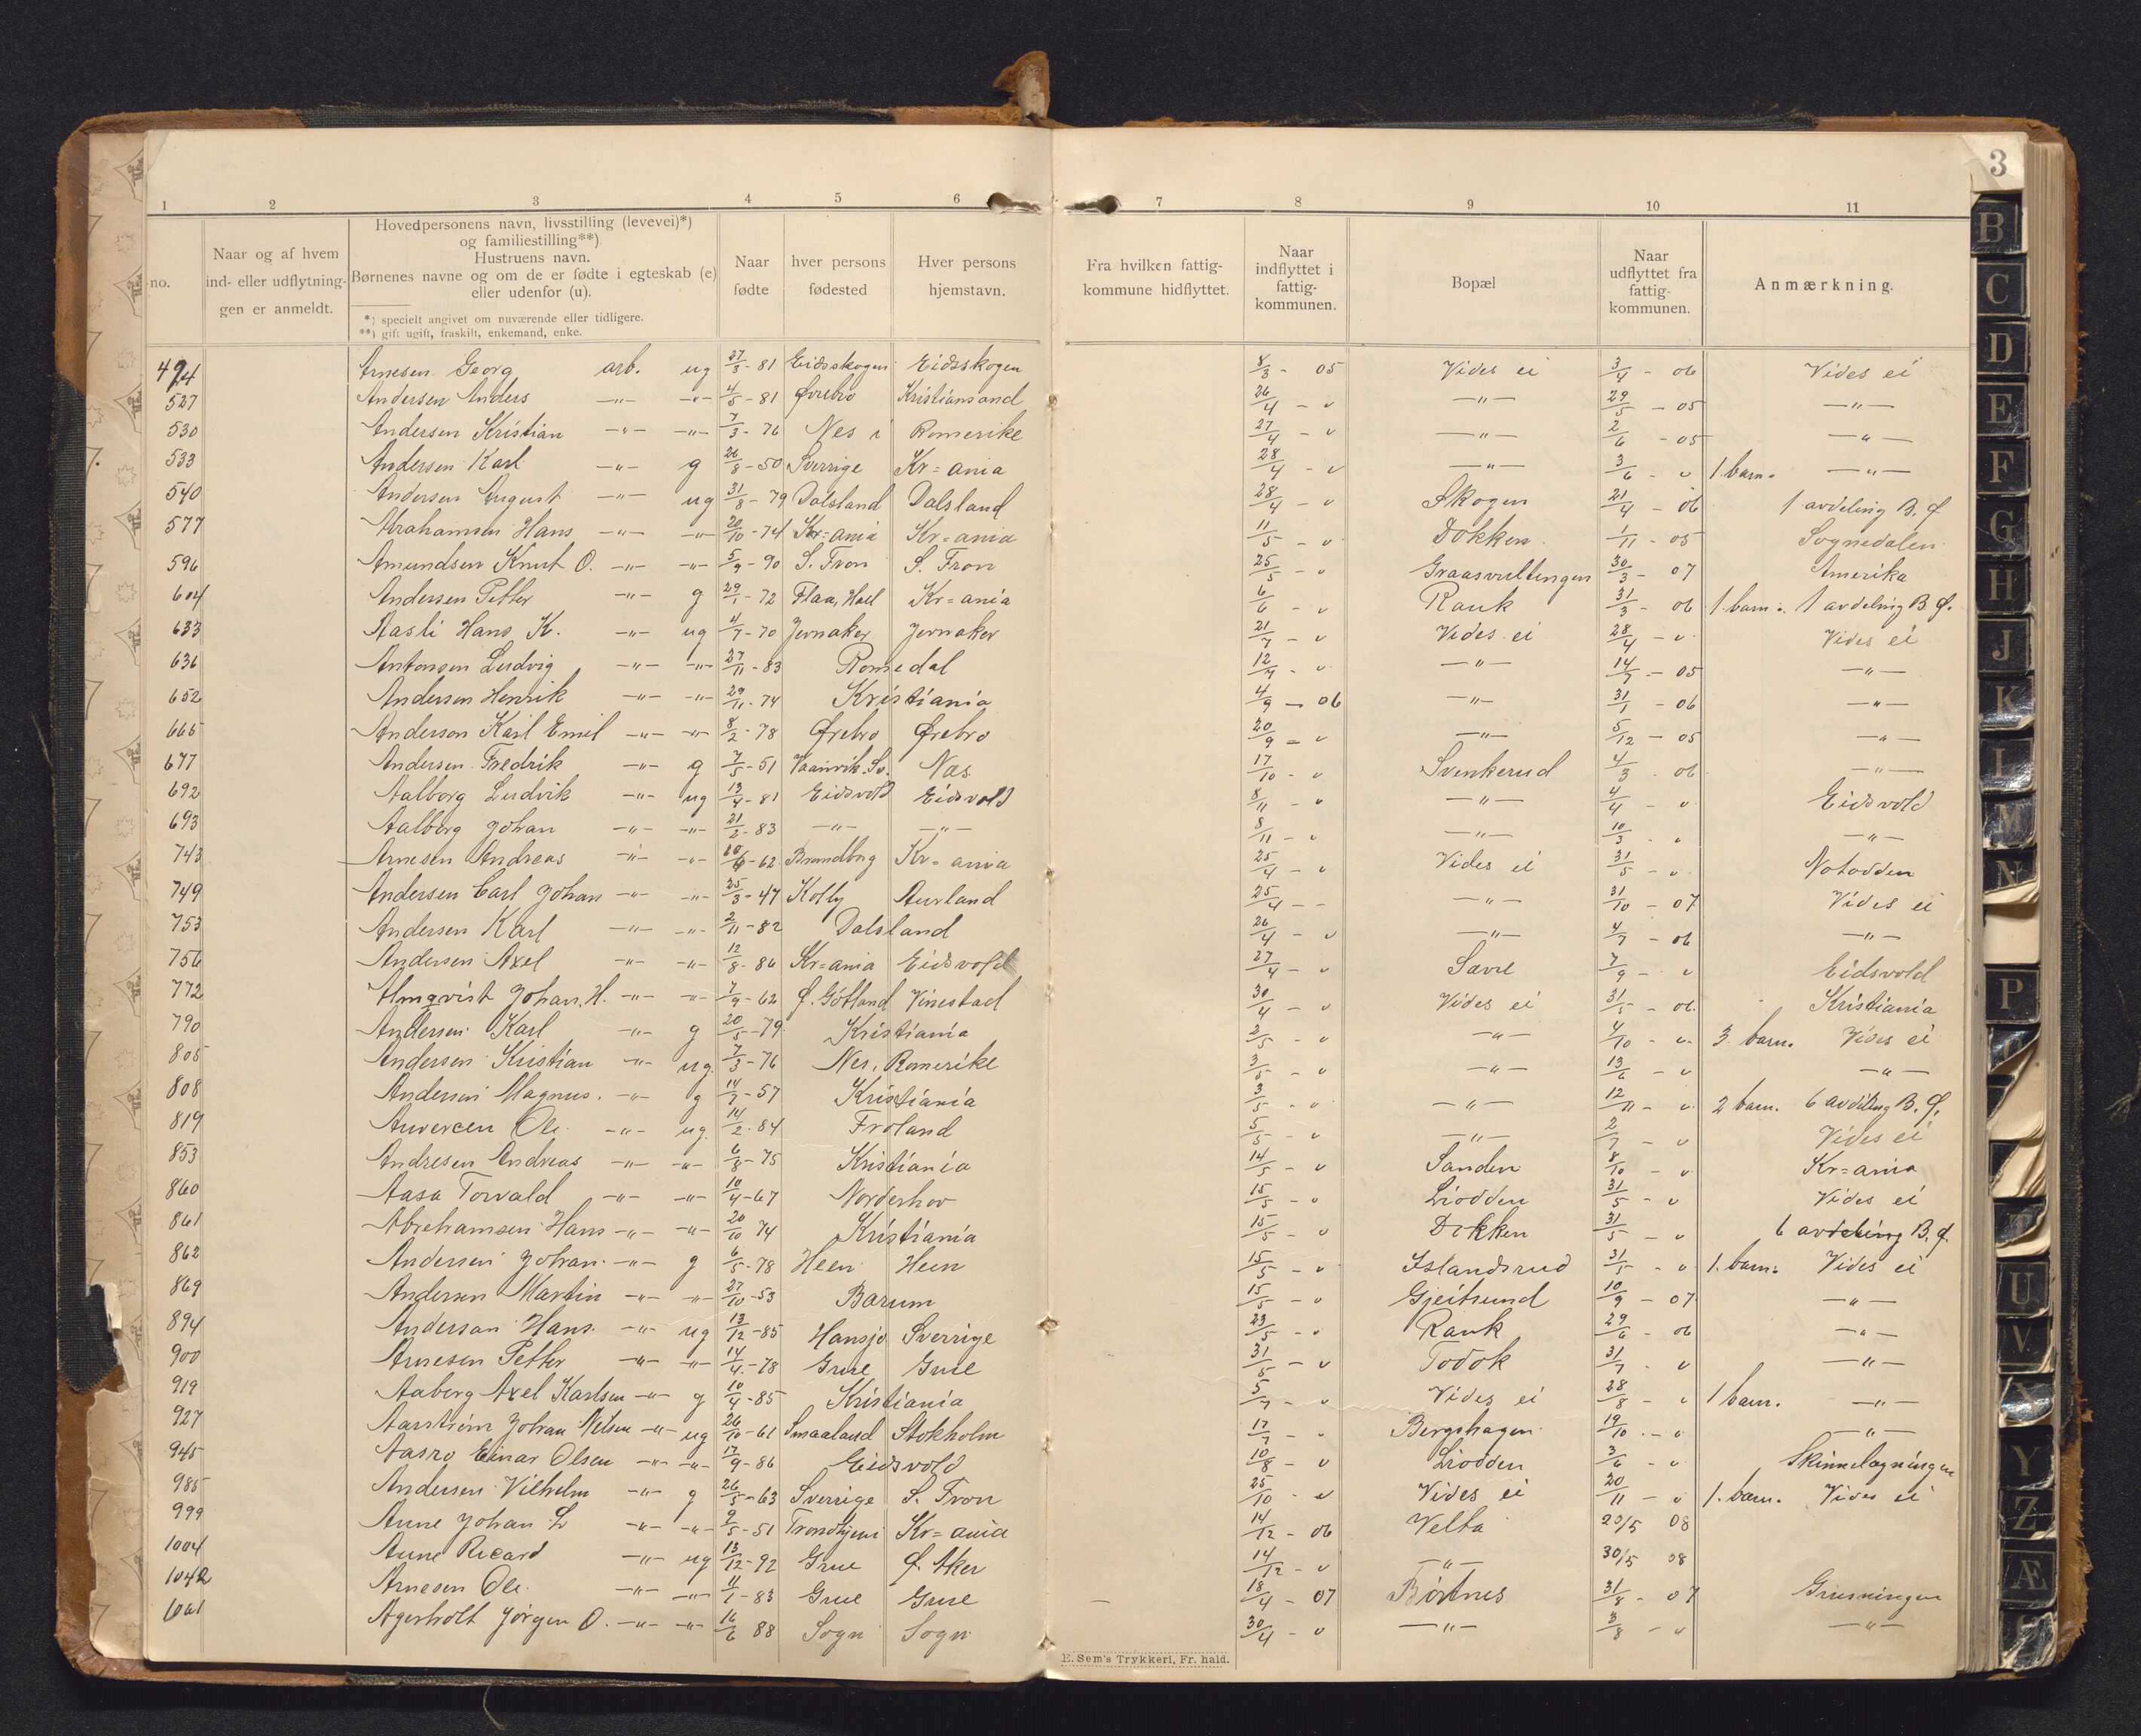 3
1 2 3 4 5 6 7 8 9 10 11
no.
Naar og af hvem
ind- eller udflytnin-
gen er anmeldt.
Hovedpersonens navn, livsstilling (levevei)*)
og familiestilling**)
Hustruens navn.
Børnenes navne og om de er fødte i egteskab (e)
eller udenfor (u).
*) specielt angivet om nuværende eller tidligere.
**) gift ugift, fraskilt, enkemand, enke.
Naar
fødte
hver persons
fødested
Hver persons
hjemstavn.
Fra hvilken fattig-
kommune hidflyttet.
Naar
indflyttet i
fattig-
kommunen.
Bopæl
Naar
udflyttet fra
fattig-
kommunen.
Anmærkning.
494 Arnesen Georg arb. ug 27/3-81 Eidsskogen Eidsskogen 8/3 - 05 Vides ei 3/4 - 06 Vides ei
527 Andersen Anders -"- -"- 4/5-81 Ørebro Kristiansand 26/4 - " -"- 29/5 - 05 -"-
530 Andersen Kristian -"- -"- 7/3-76 Nes i Romerike 27/4 - " -"- 2/6 - 05 -"-
533 Andersen Karl -"- g 26/8-50 Sverrige Kr=ania 28/4 - " -"- 3/6 - " 1 barn. -"-
540 Andersen August -"- ug 31/8-79 Dalsland Dalsland 28/4 - " Skogen 21/4 - 06 1 avdeling B. Ø
577 Abrahamsen Hans -"- -"- 20/10-74 Kr=ania Kr=ania 11/5 - " Dokken 1/11 - 05 Sognedalen
596 Amundsen Knut O. -"- -"- 5/9-90 S. Fron S. Fron 25/5 - " Graasvultingen 30/3 - 07 Amerika
604 Andersen Petter -"- g 29/1-72 Flaa, Hall Kr=ania 6/6 - " Rauk 31/3 - 06 1 barn. 1 avdeling B. Ø.
633 Aasli Hans K. -"- ug 4/7-70 Jevnaker Jevnaker 21/7 - " Vides ei 28/4 - " Vides ei
636 Antonsen Ludvig -"- -"- 27/11-83 Romedal 12/7 - " -"- 14/7 - 05 -"-
652 Andersen Henrik -"- -"- 29/11-74 Kristiania 4/9 - 06 -"- 31/1 - 06 -"-
665 Anderson Karl Emil -"- -"- 8/2-78 Ørebro Ørebro 20/9 - " -"- 5/12 - 05 -"-
677 Andersen Fredrik -"- g 7/5-51 Sv. Nas 17/10 - " Svenkerud 4/3 - 06 -"-
692 Aalborg Ludvik -"- ug 13/4-81 Eidsvold Eidsvold 8/11 - " -"- 4/4 - " Eidsvold
693 Aalborg Johan -"- -"- 21/2-83 -"- -"- 8/11 - " -"- 10/3 - " -"-
743 Arnesen Andreas -"- -"- 10/6-62 Brandbug Kr=ania 25/4 - " Vides ei 31/5 - " Notodden
749 Andersen Carl Johan -"- -"- 25/3-47 Kolly Aurland 25/4 - - -"- 31/10 - 07 Vides ei
753 Andersen Karl -"- -"- 2/11-82 Dalsland 26/4 - " -"- 4/7 - 06 -"-
756 Andersen Axel -"- -"- 12/8-86 Kr=ania Eidsvold 27/4 - " Savre 7/9 - " Eidsvold
772 Almqvist Johan. H. -"- -"- 7/9-62 Ø. Götland Vinestad 30/4 - " Vides ei 31/5 - 06 Kristiania
790 Andersen Karl -"- g 20/5-79 Kristiania 2/5 - " -"- 4/10 - " 3 barn. Vides ei
805 Andersen Kristian -"- ug. 7/3-76 Nes, Romerike 3/5 - " -"- 13/6 - " -"-
808 Andersen Magnus. -"- g 14/7-57 Kristiania 3/5 - " -"- 12/11 - " 2 barn. 6 avdeling B. Ø.
819 Ole -"- ug. 14/2-84 Froland 5/5 - " -"- 2/7 - " Vides ei
853 Andresen Andreas -"- -"- 6/8-75 Kristiania 14/5 - " Sanden 8/10 - " Kr=ania
860 Aasa Torvald -"- -"- 10/4-67 Norderhov 15/5 - " Liodden 31/5 - " Vides ei
861 Abrehamsen Hans -"- -"- 20/10 74 Kristiania 15/5 - " Dokken 31/5 - " 6 avdeling B. Ø.
862 Andersen Johan -"- g 6/5-78 Heen Heen 15/5 - " Islandsrud 31/5 - " 1. barn. Vides ei
869 Andersen Martin -"- -"- 27/10-53 Barum 15/5 - " Gjeitsund 10/9 - 07 -"-
894 Anderson Hans. -"- ug 13/12-85 Hansjo Sverrige 23/5 - " Rauk 29/6 - 06 -"-
900 Arnesen Petter -"- -"- 14/4-78 Grue Grue 31/5 - " Todok 31/7 - " -"-
919 Aaberg Axel Karlsen -"- g 10/4-85 Kristiania 5/7 - " Vides ei 28/8 - " 1 barn. -"-
927 Aarstrøm Johan Nelsen -"- ug 26/10-61 Smaaland Stokholm 17/7 - " Bergshagen 19/10 - " -"-
945 Aasro Einar Olsen -"- -"- 17/9-86 Eidsvold 10/8 - " Liodden 3/6 - " Skinnelægningen
985 Andersen Vilhelm -"- g 26/5-63 Sverrige S. Fron 25/10 - " Vides ei 20/11 - " 1. barn. Vides ei
999 Aune Johan L -"- -"- 9/5-51 Trondhjem Kr=ania 14/12 - 06 Velta 20/5 08
1004 Aune Ricard -"- ug 13/12-92 Grue Ø. Aker 14/12 - " -"- 30/5 08
1042 Arnesen Ole. -"- -"- 11/1-83 Grue Grue 18/4 - 07 Børtnes 31/8 - 07 Grusningen
1061 Agerholt Jørgen O. -"- -"- 16/6 88 Sogn Sogn 30/4 - " -"- 3/8 - " -"-
E. Sem's Trykkeri, Fr. hald.
B
C
D
E
F
G
H
J
K
L
M
N
P
T
U
V.
X
Y
Z
Æ